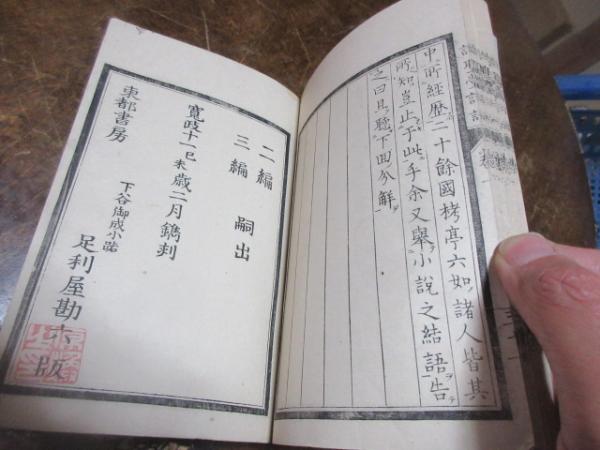 中所經歷二十餘國栲亭六如諸人皆其
所知豈止于此乎余又舉小說之結語告
之曰且聽下回分解
二編
三編 嗣出
寬政十一己未歲二月鐫刻
東都書房
下谷御成小路
足利屋勘六版